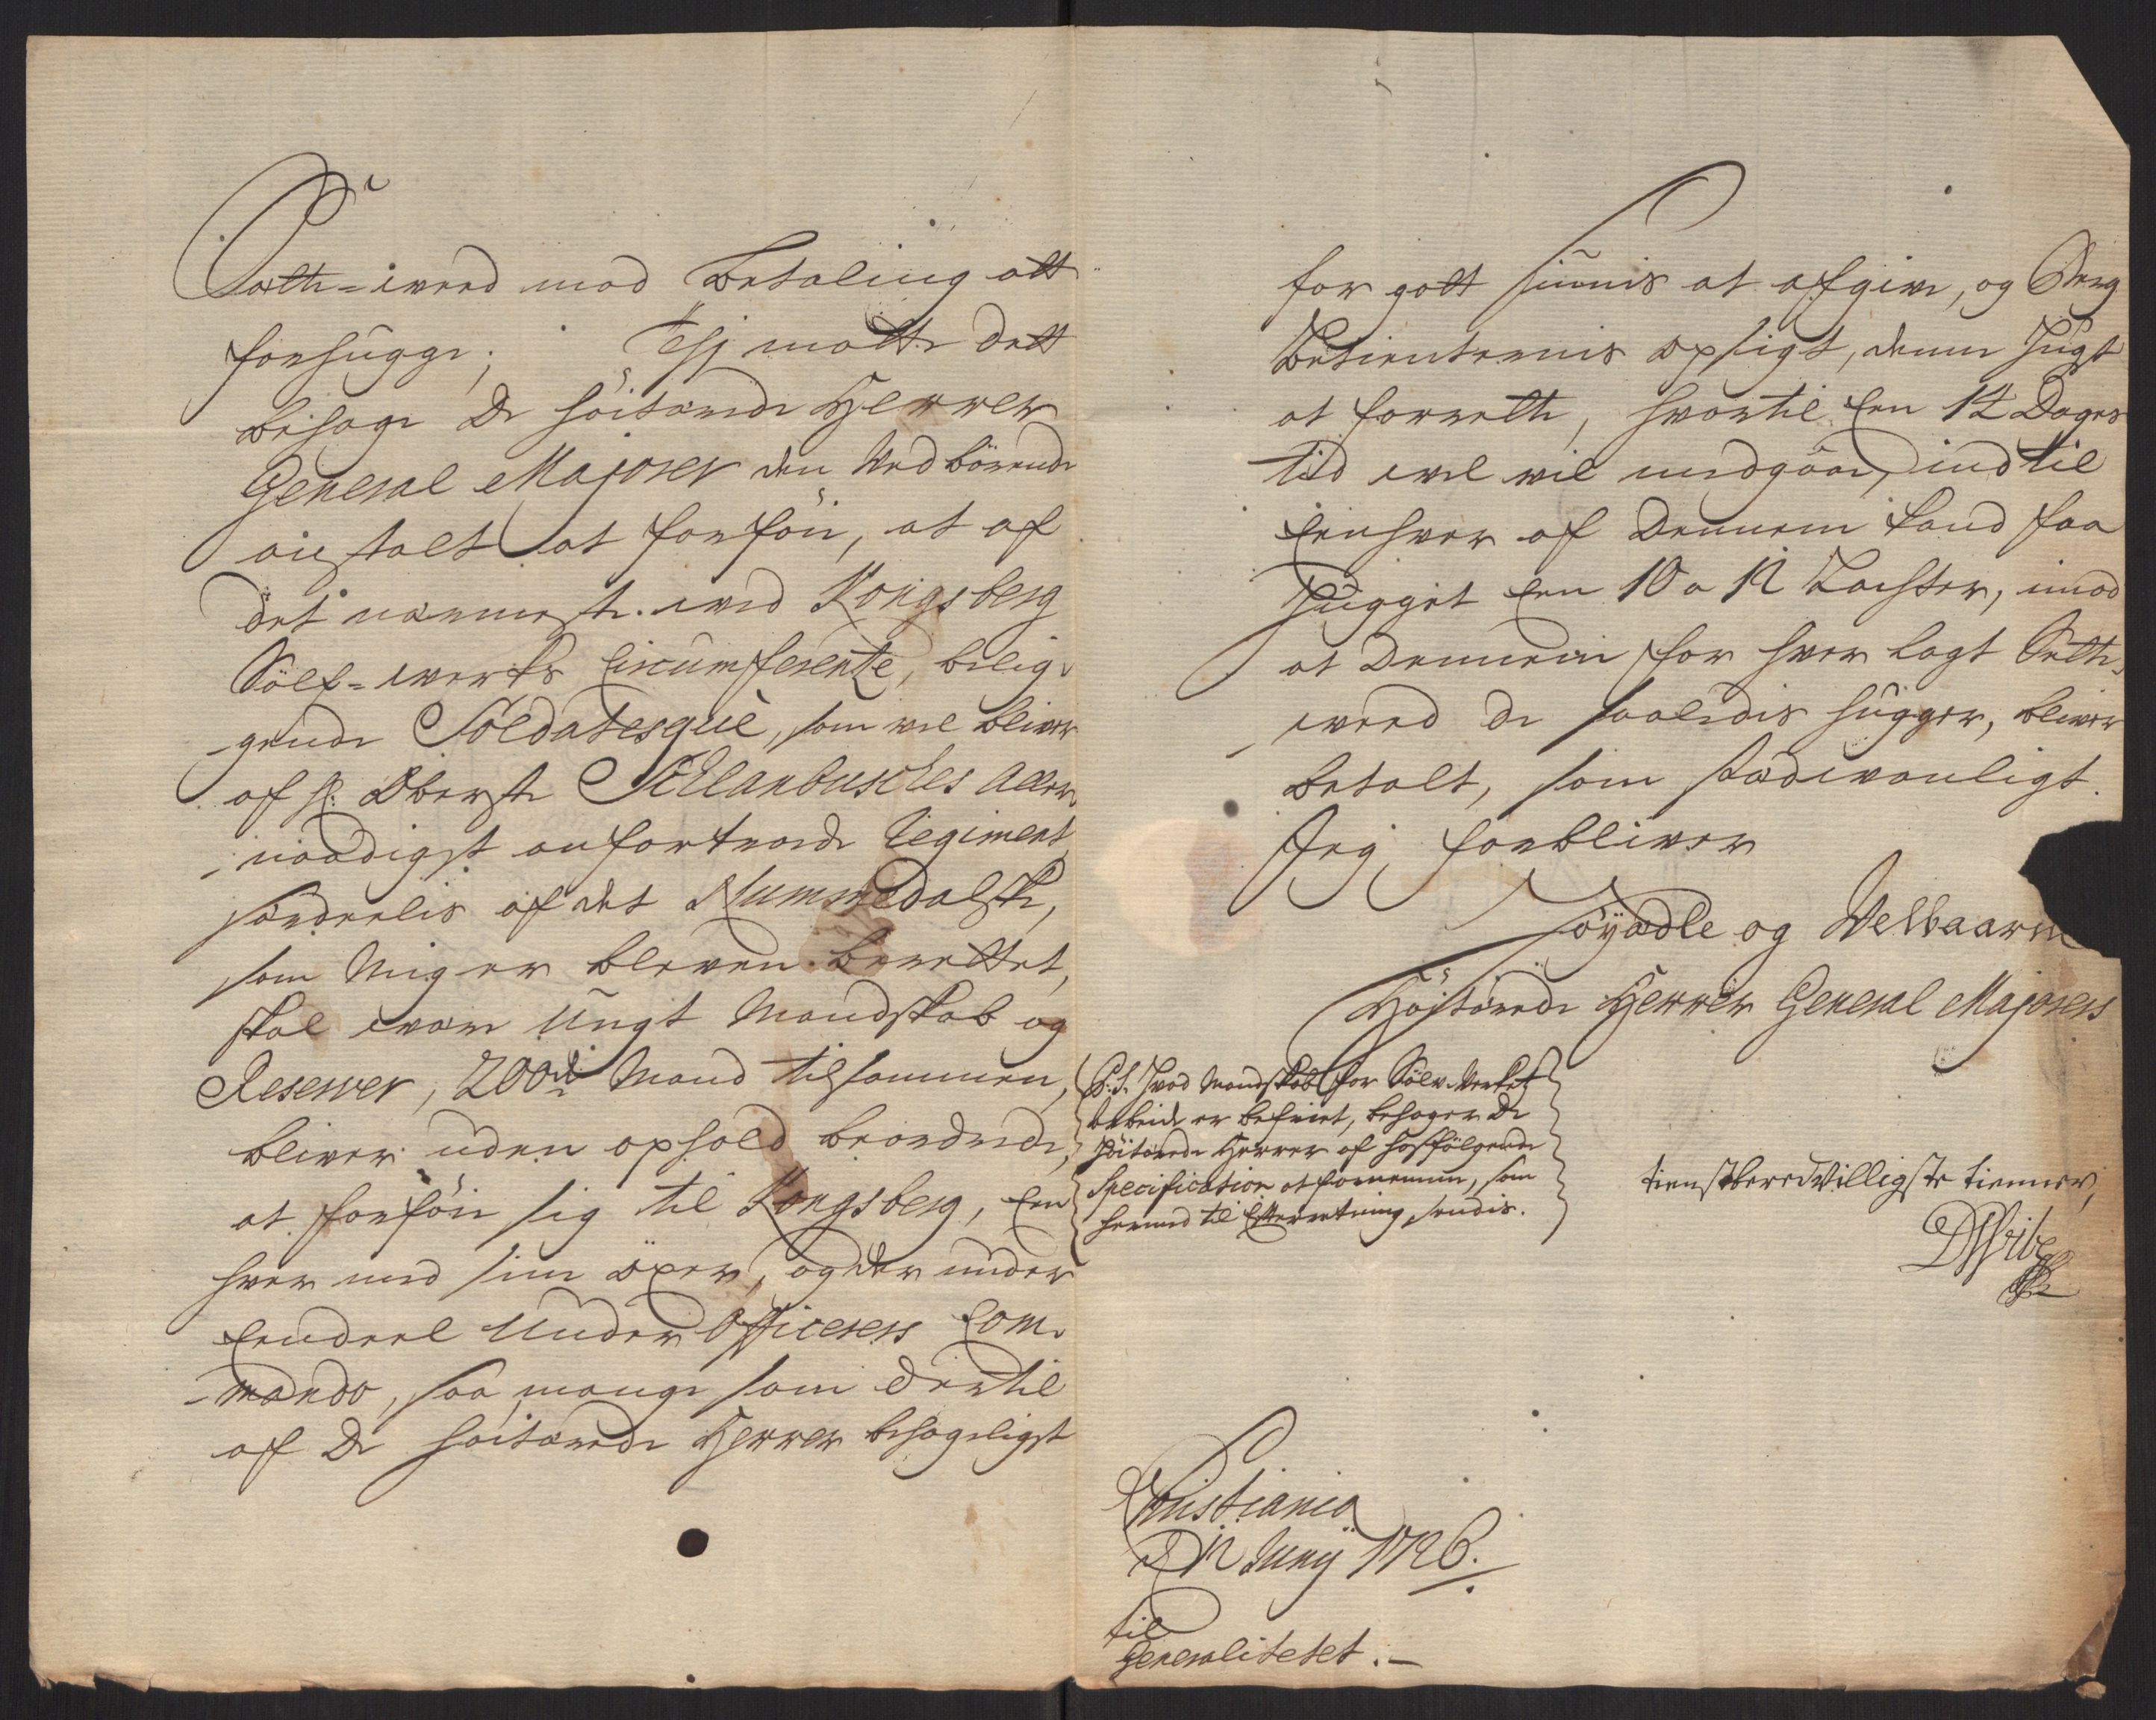 Sætte-weed mod Betaling att
forhugge; Thj motte dett
behage De höitærede Herrer
General Majorer den Vedbörende
anstalt at forföie, at af
det nærmeste wed Kongsberg
Sölf-werks Circumferentze, belig-
-gende Soldatesque, som vel bliver
af H: Oberste Schlanbusches Aller-
-naadigst anfortroede Regiment
særdeelis af det Nummedalske,
som Mig er bleven berettet,
skal wære Ungt Mandskab og
Reserver, 200de Mand tilsammen,
bliver uden ophold beordrede,
at forföie sig til Kongsberg, Een
hver med sine öxer, og der under
Eendeel Under Officerers Com-
-mando, saa mange som dertil
af De höitærede Herrer behageligst
for gott siunis at afgive, og Berg
Betienternis opsigt, denne Hugst
at forrette, hvortil Een 14 Dages
tid wel vil medgaae, indtil
Eenhver af Dennem kand faa
hugget Een 10 a 12 Lachter, imod
at Dennem for hver lagt Sætte-
weed de saaledis hugger, bliver
betalt, som sædwanligt.
Jeg forbliver
Höyædle og Velbaarn
Höjtærede Herrer General Majorers
P.S. Hvad Mandskab for Sölv-Verkets
Arbeide er befriet, behager De
Höitærede Herrer af hosfölgende
Specification at fornemme, som
hermed til Efterretning sendis.
tienstberedvilligste tienner,
DWibe
Christiania
d 12 Junij 1726.
til
Generalitetet.-